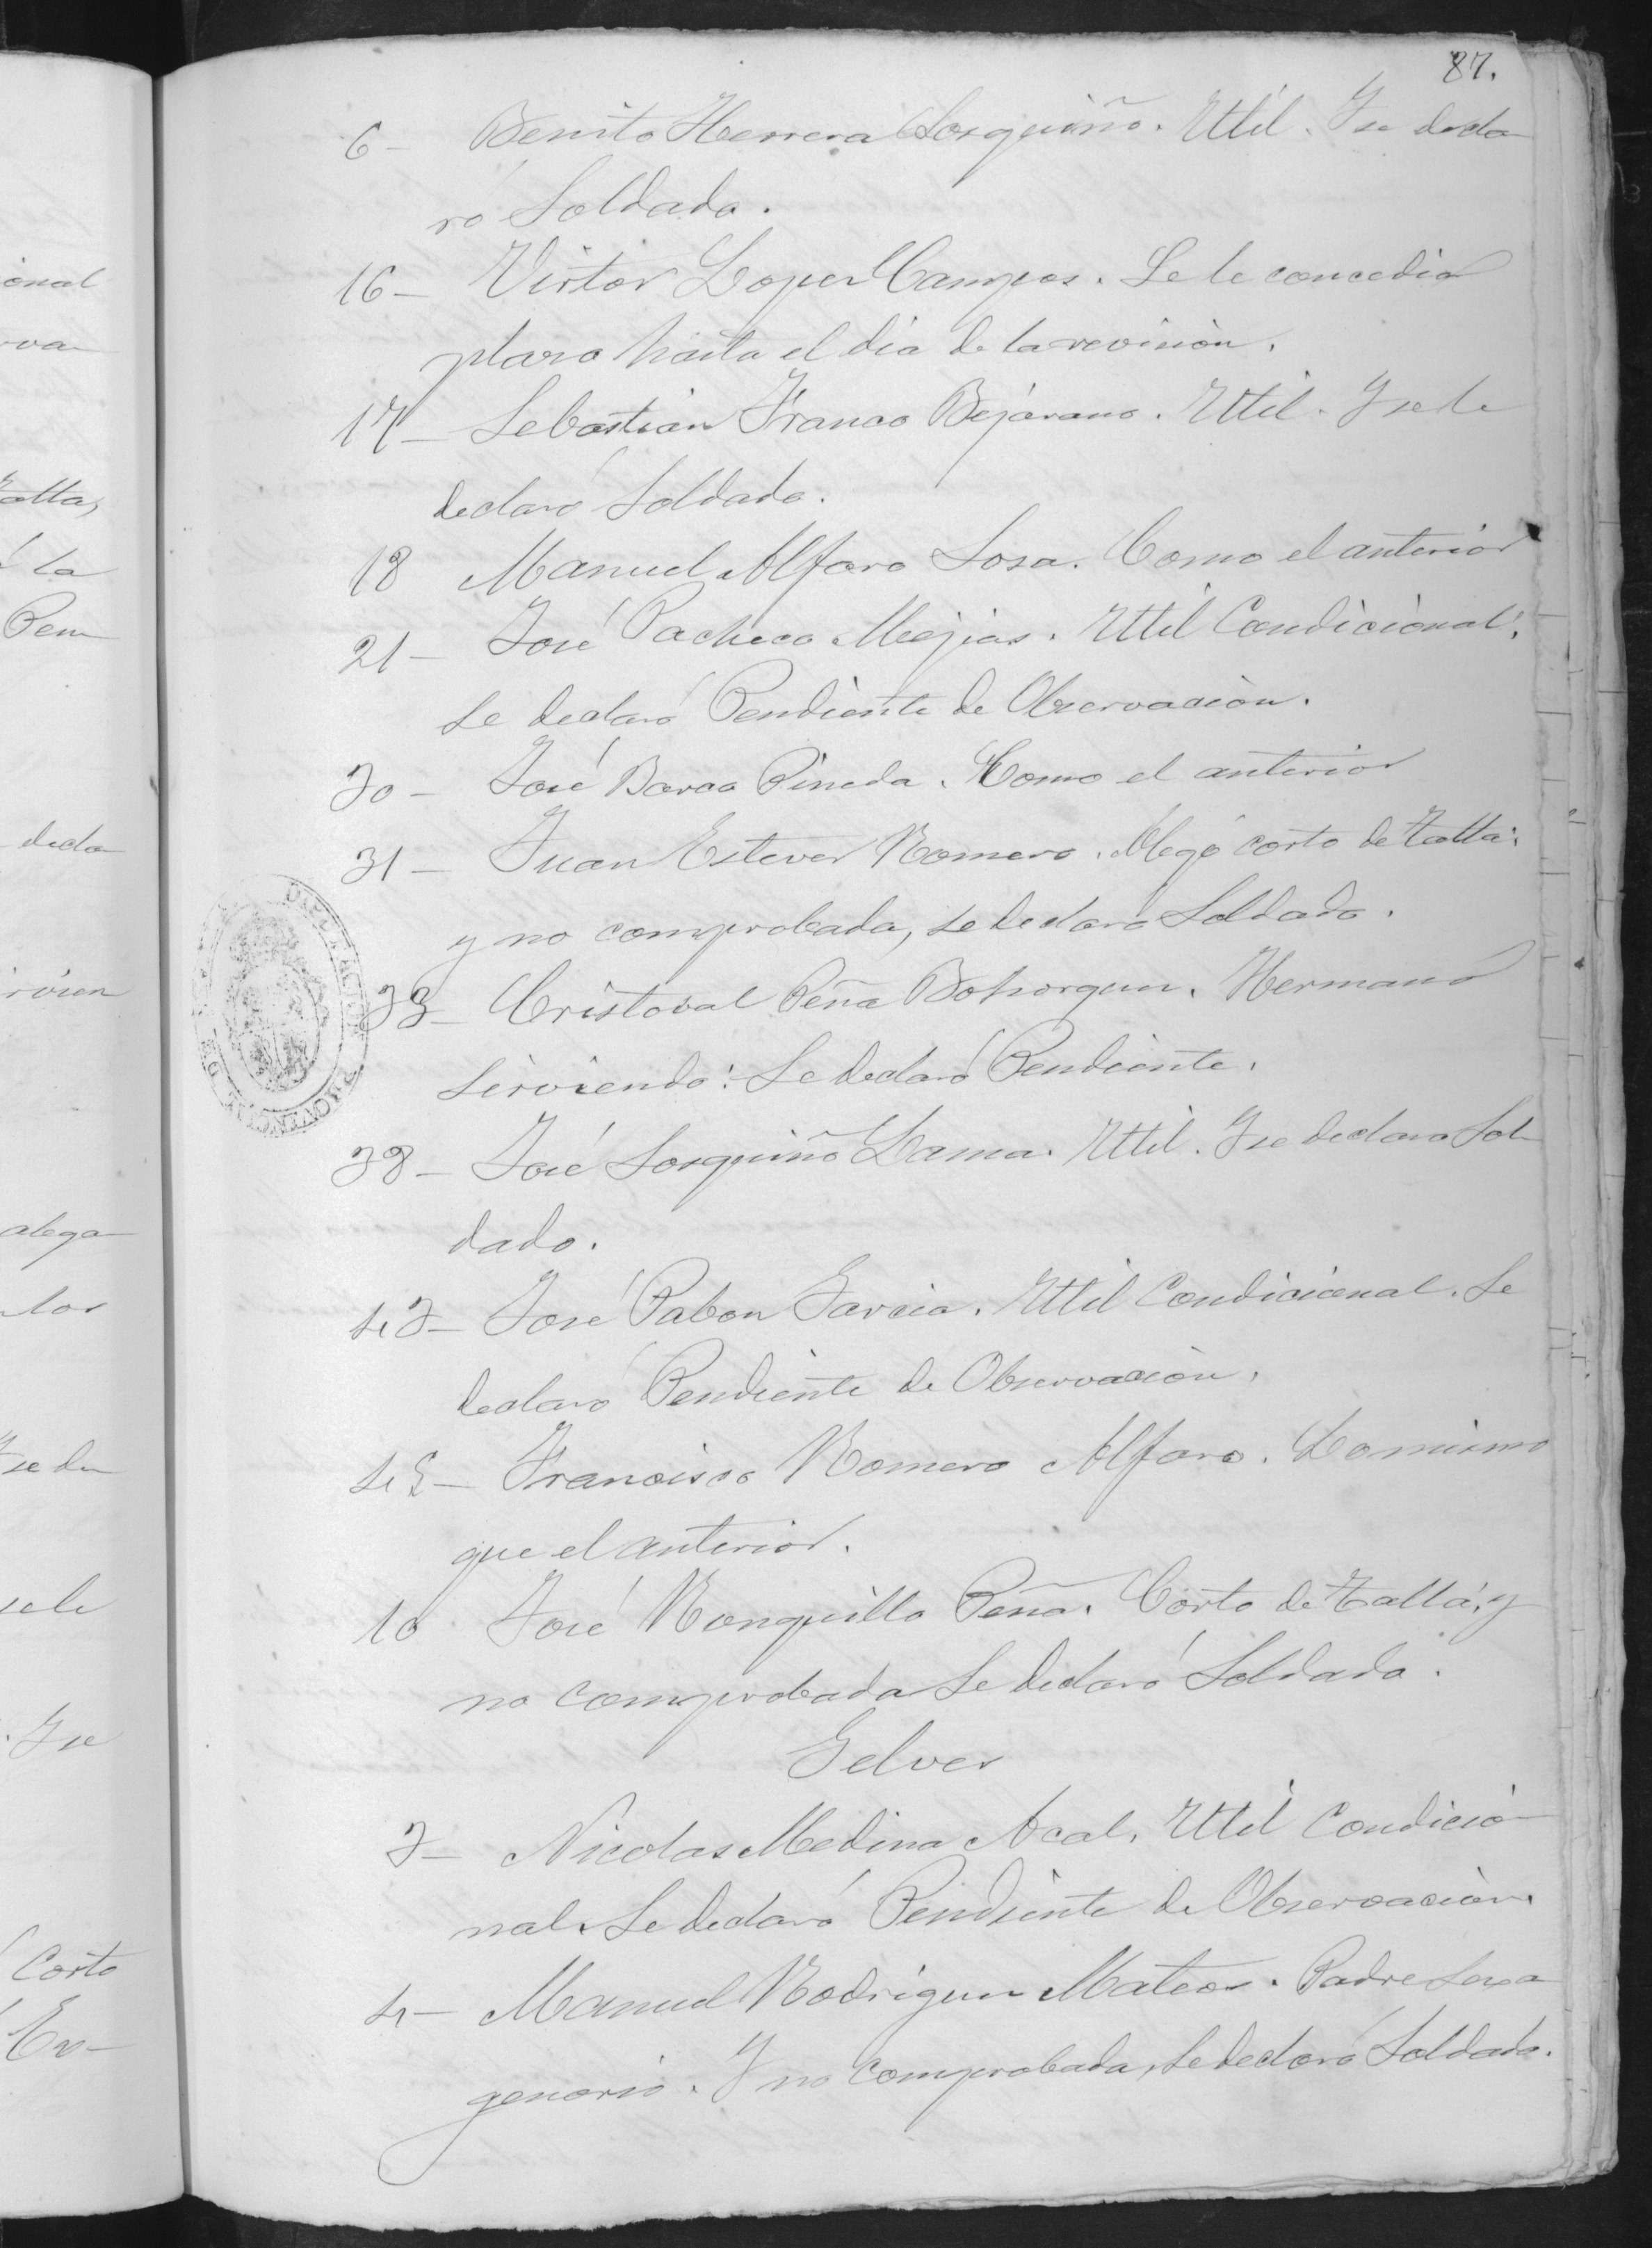 87.
6 — Benito Herrera Sorquiño. Util. Y se decla
ró Soldado.
16 — Victor Lopez Campos. Se le concedió
plazo hasta el dia de la revisión.
17 — Sebastian Franco Bejarano. Util. Y se le
declaró Soldado.
18 Manuel Alfaro Sosa. Como el anterior
21 — José Pacheco Mejias. Util Condicional.
Se declaró Pendiente de Observación.
30 — José Barea Pineda. Como el anterior
31 — Juan Estevez Romero. Alegó corto de talla:
y no comprobada, se declaró Soldado.
33 — Cristobal Peña Bohorquez. Hermano
sirviendo: Se declaró Pendiente.
38 — José Sorquiño Lama. Util. Y se declaro Sol
dado.
43 — José Pabon Garcia. Util Condicional. Se
declaró Pendiente de Observación.
45 — Francisco Romero Alfaro. Lo mismo
que el anterior.
10 José Ronquillo Peña. Corto de talla, y
no comprobada Se declaró Soldado.
Gelves
3 — Nicolas Medina Acal. Util Condicio
nal. Se declaró Pendiente de Observación.
4 — Manuel Rodriguez Mateos. Padre sexa
genario. Y no comprobada, se declaró Soldado.
onal
alta,
la
Pen
decla
alega
los
se le
Y se
Corto
DIPUTACION PROVINCIAL DE